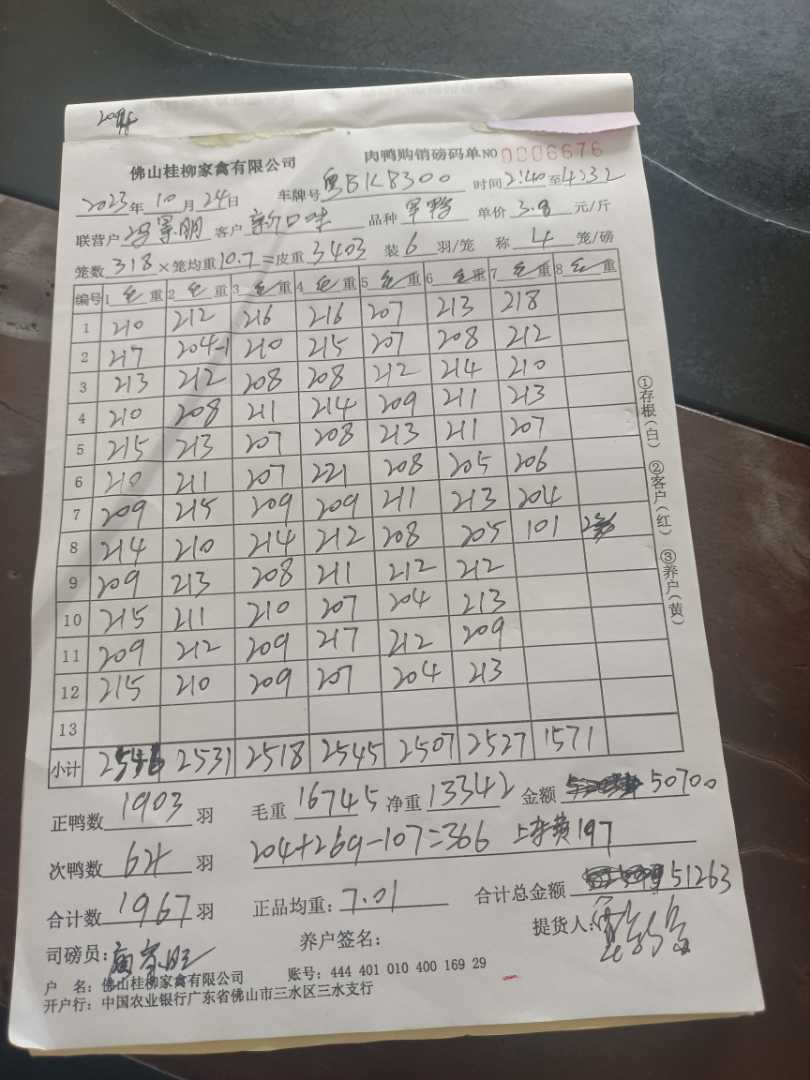 204
佛山桂柳家禽有限公司 肉鸭购销磅码单 NO 0006676
2023年10月24日 车牌号 粤BK8300 时间2:40至4:32
联营户 客户 新口味 品种 单价 3.8 元/斤
笼数 318 × 笼均重 10.7 = 皮重 3403 装 6 羽/笼 称 4 笼/磅
编号 1 毛重 2 毛重 3 毛重 4 毛重 5 毛重 6 毛重 7 毛重 8 毛重
1 210 212 216 216 207 213 218
2 217 204-1 210 215 207 208 212
3 213 212 208 208 212 214 210
4 210 208 211 214 209 211 213
5 215 213 207 208 213 211 207
6 210 211 207 221 208 205 206
7 209 215 209 209 211 213 204
8 214 210 214 212 208 205 101
9 209 213 208 211 212 212
10 215 211 210 207 204 213
11 209 212 209 217 212 209
12 215 210 209 207 204 213
13
小计 2546 2531 2518 2545 2507 2527 1571
正鸭数 1903 羽 毛重 16745 净重 13342 金额 50700
次鸭数 64 羽 204+269-107=366 上车费197
合计数 1967 羽 正品均重: 7.01 合计总金额 51263
司磅员: 养户签名: 提货人:
户 名: 佛山桂柳家禽有限公司 账号: 444 401 010 400 169 29
开户行: 中国农业银行广东省佛山市三水区三水支行
①存根(白) ②客户(红) ③养户(黄)